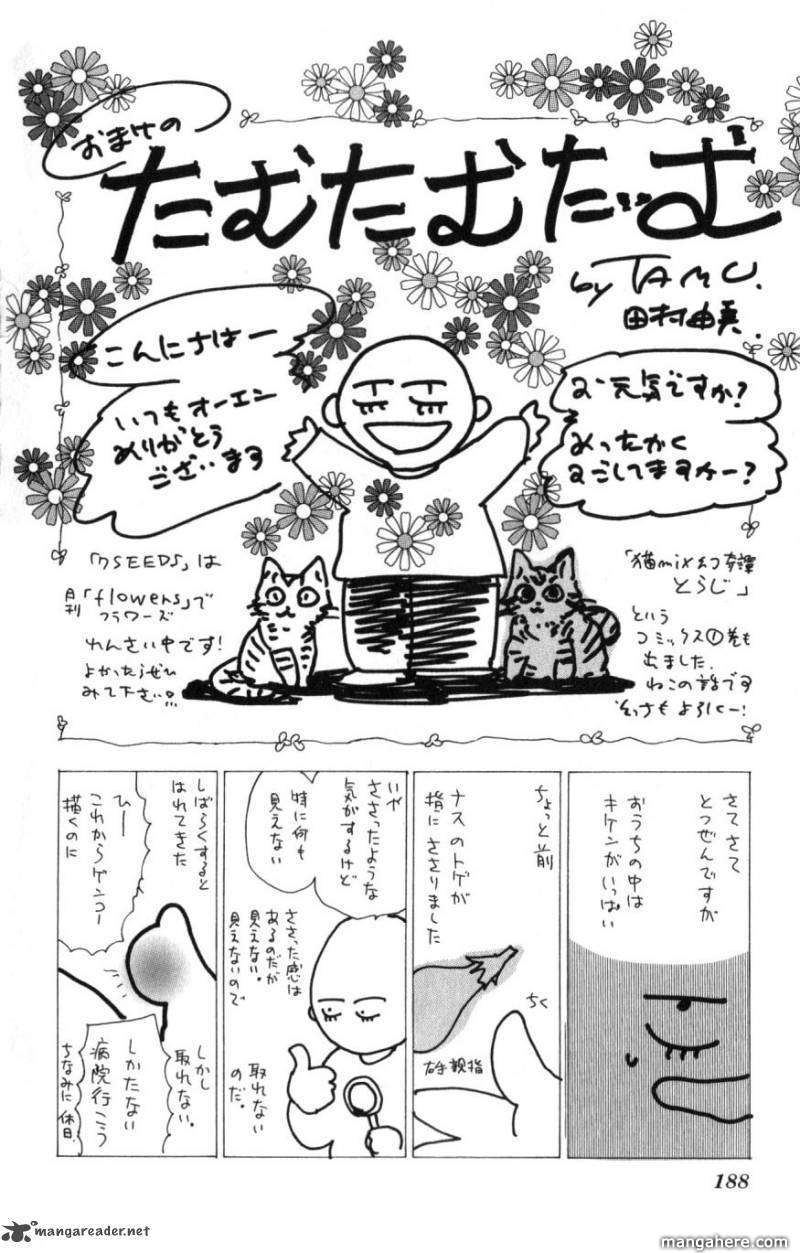 おまけの
たむたむたいむ
by TAMU.
田村由美.
こんにちはー
いつもオーエン
ありがとう
ございます
お元気ですか?
あったかく
すごしてますかー?
「7SEEDS」は
月刊「flowers」で
フラワーズ
れんさい中です!
よかったらぜひ
みて下さい。
「猫mix幻奇譚
とらじ」
という
コミックス①巻も
出ました.
ねこの話です
そっちもよろしくー!
さてさて
とつぜんですが
おうちの中は
キケンがいっぱい
ちょっと前
ナスのトゲが
指にささりました
ちく
右手親指
いや
ささったような
気がするけど
特に何も
見えない
ささった感は
あるのだが
見えない。
見えないので
取れない
のだ。
しばらくすると
はれてきた
ひー
これからゲンコー
描くのに
しかし
取れない.
しかたない
病院行こう
ちなみに休日.
188
mangareader.net
www.mangahere.com